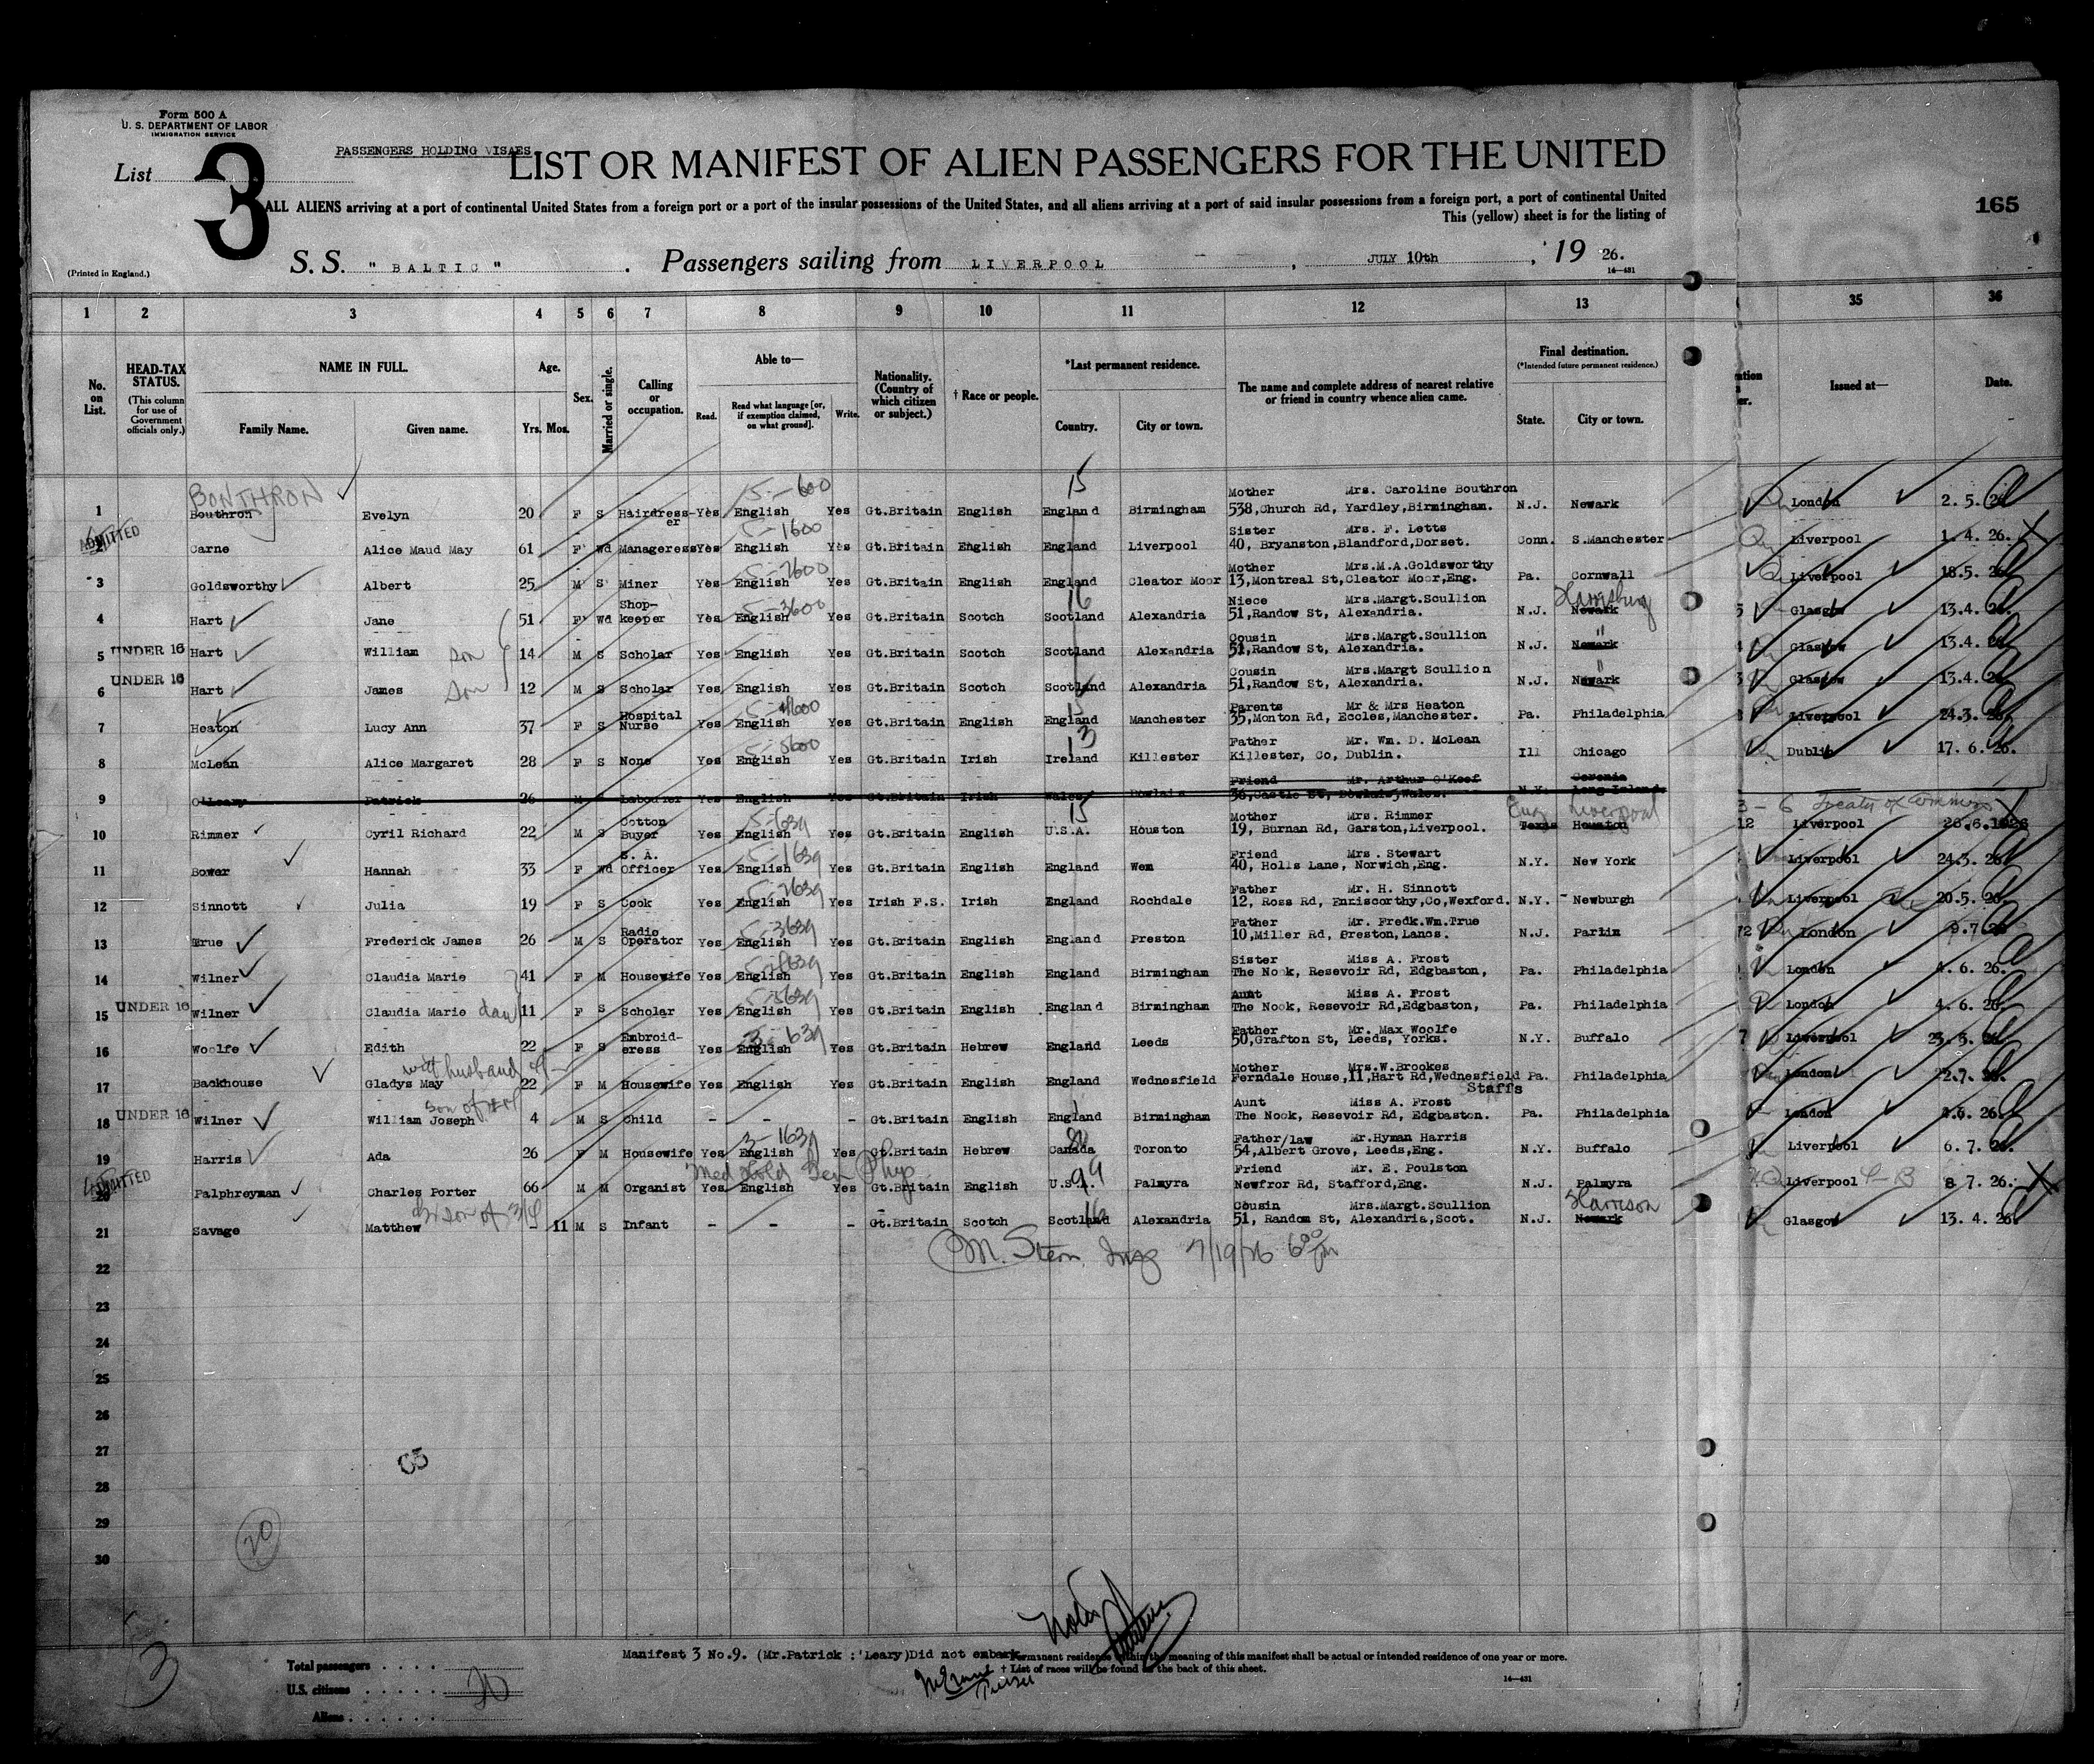 Form 500 A
U. S. DEPARTMENT OF LABOR
IMMIGRATION SERVICE
PASSENGERS HOLDING VISAES
List 3
LIST OR MANIFEST OF ALIEN PASSENGERS FOR THE UNITED
ALL ALIENS arriving at a port of continental United States from a foreign port or a port of the insular possessions of the United States, and all aliens arriving at a port of said insular possessions from a foreign port, a port of continental United
This (yellow) sheet is for the listing of
165
(Printed in England.)
S. S. "BALTIC" . Passengers sailing from LIVERPOOL , JULY 10th , 19 26.
16—431
1 2 3 4 5 6 7 8 9 10 11 12 13 35 36
No. on List.
HEAD-TAX STATUS. (This column for use of Government officials only.)
NAME IN FULL.
Family Name. Given name.
Age.
Yrs. Mos.
Sex.
Married or single.
Calling or occupation.
Able to—
Read. Read what language [or, if exemption claimed, on what ground]. Write.
Nationality. (Country of which citizen or subject.)
† Race or people.
*Last permanent residence.
Country. City or town.
The name and complete address of nearest relative or friend in country whence alien came.
Final destination.
(*Intended future permanent residence.)
State. City or town.
Issued at— Date.
BONTHRON 5-600 15 Mother Mrs. Caroline Bouthron
1 Bouthron Evelyn 20 F S Hairdress-er Yes English Yes Gt.Britain English England Birmingham 538,Church Rd, Yardley,Birmingham. N.J. Newark London 2.5.26
ADMITTED 5-1600 Sister Mrs. F. Letts
2 Carne Alice Maud May 61 F Wd Manageress Yes English Yes Gt.Britain English England Liverpool 40, Bryanston,Blandford,Dorset. Conn. S.Manchester Liverpool 1.4.26.
5-2600 Mother Mrs.M.A.Goldsworthy
3 Goldsworthy Albert 25 M S Miner Yes English Yes Gt.Britain English England Cleator Moor 13,Montreal St,Cleator Moor,Eng. Pa. Cornwall Liverpool 18.5.26
5-3600 16 Niece Mrs.Margt.Scullion Harrisburg
4 Hart Jane 51 F Wd Shop-keeper Yes English Yes Gt.Britain Scotch Scotland Alexandria 51,Randow St, Alexandria. N.J. Newark Glasgow 13.4.26.
UNDER 16 Cousin Mrs.Margt.Scullion "
5 Hart William son 14 M S Scholar Yes English Yes Gt.Britain Scotch Scotland Alexandria 51,Randow St, Alexandria. N.J. Newark Glasgow 13.4.26
UNDER 16 Cousin Mrs.Margt Scullion "
6 Hart James son 12 M S Scholar Yes English Yes Gt.Britain Scotch Scotland Alexandria 51,Randow St, Alexandria. N.J. Newark Glasgow 13.4.26
5-4600 15 Parents Mr & Mrs Heaton
7 Heaton Lucy Ann 37 F S Hospital Nurse Yes English Yes Gt.Britain English England Manchester 35,Monton Rd, Eccles,Manchester. Pa. Philadelphia Liverpool 24.3.26
5-5600 13 Father Mr. Wm. D. McLean
8 McLean Alice Margaret 28 F S None Yes English Yes Gt.Britain Irish Ireland Killester Killester, Co, Dublin. Ill Chicago Dublin 17.6.26.
Friend Mr. Arthur O'Keef Coronia
9 O'Leary Patrick 26 M S Labourer Yes English Yes Gt.Britain Irish Wales Dowlais 36,Castle St, Dowlais,Wales. N.Y. Long Island.
5-639 15 Mother Mrs. Rimmer Eng Liverpool 3-6 Treaty of Commerce
10 Rimmer Cyril Richard 22 M S Cotton Buyer Yes English Yes Gt.Britain English U.S.A. Houston 19, Burnan Rd, Garston,Liverpool. Texas Houston 12 Liverpool 26.6.1926
5-1639 Friend Mrs. Stewart
11 Bower Hannah 33 F Wd S. A. Officer Yes English Yes Gt.Britain English England Wem 40, Holls Lane, Norwich,Eng. N.Y. New York Liverpool 24.3.26
5-2639 Father Mr. H. Sinnott
12 Sinnott Julia 19 F S Cook Yes English Yes Irish F.S. Irish England Rochdale 12, Ross Rd, Enniscorthy,Co,Wexford. N.Y. Newburgh Liverpool 20.5.26
5-3639 Father Mr. Fredk.Wm.True
13 True Frederick James 26 M S Radio Operator Yes English Yes Gt.Britain English England Preston 10,Miller Rd, Preston,Lancs. N.J. Parlin London 9.7.26
5-4639 Sister Miss A. Frost
14 Wilner Claudia Marie 41 F M Housewife Yes English Yes Gt.Britain English England Birmingham The Nook, Resevoir Rd, Edgbaston, Pa. Philadelphia London 4.6.26.
UNDER 16 5-5639 Aunt Miss A. Frost
15 Wilner Claudia Marie dau 11 F S Scholar Yes English Yes Gt.Britain English England Birmingham The Nook, Resevoir Rd,Edgbaston, Pa. Philadelphia London 4.6.26
3-639 Father Mr. Max Woolfe
16 Woolfe Edith 22 F S Embroid-eress Yes English Yes Gt.Britain Hebrew England Leeds 50,Grafton St, Leeds, Yorks. N.Y. Buffalo Liverpool 23.3.26
with husband Mother Mrs.W.Brookes
17 Backhouse Gladys May 22 F M Housewife Yes English Yes Gt.Britain English England Wednesfield Ferndale House,11,Hart Rd,Wednesfield Staffs Pa. Philadelphia London 2.7.26.
UNDER 16 son of #14 Aunt Miss A. Frost
18 Wilner William Joseph 4 M S Child - - - Gt.Britain English England Birmingham The Nook, Resevoir Rd, Edgbaston. Pa. Philadelphia London 4.6.26.
3-1639 Father/law Mr.Hyman Harris
19 Harris Ada 26 F M Housewife Yes English Yes Gt.Britain Hebrew Canada Toronto 54,Albert Grove, Leeds,Eng. N.Y. Buffalo Liverpool 6.7.26.
ADMITTED Med Hold 99 Friend Mr. E. Poulston
20 Palphreyman Charles Porter 66 M M Organist Yes English Yes Gt.Britain English U.S.A. Palmyra Newfror Rd, Stafford,Eng. N.J. Palmyra Liverpool 8 7.26.
son of 3/4 16 Cousin Mrs.Margt.Scullion Harrison
21 Savage Matthew - 11 M S Infant - - - Gt.Britain Scotch Scotland Alexandria 51, Random St, Alexandria,Scot. N.J. Newark Glasgow 13.4.26
M. Stern Insp 7/19/26 6 00 pm
22
23
24
25
26
27
28
29
30
20
3
Manifest 3 No.9. (Mr.Patrick :'Leary)Did not embark
* Permanent residence within the meaning of this manifest shall be actual or intended residence of one year or more.
† List of races will be found on the back of this sheet.
16—431
Total passengers . . . .
U.S. citizens . . . . . 20
Aliens . . . . . .